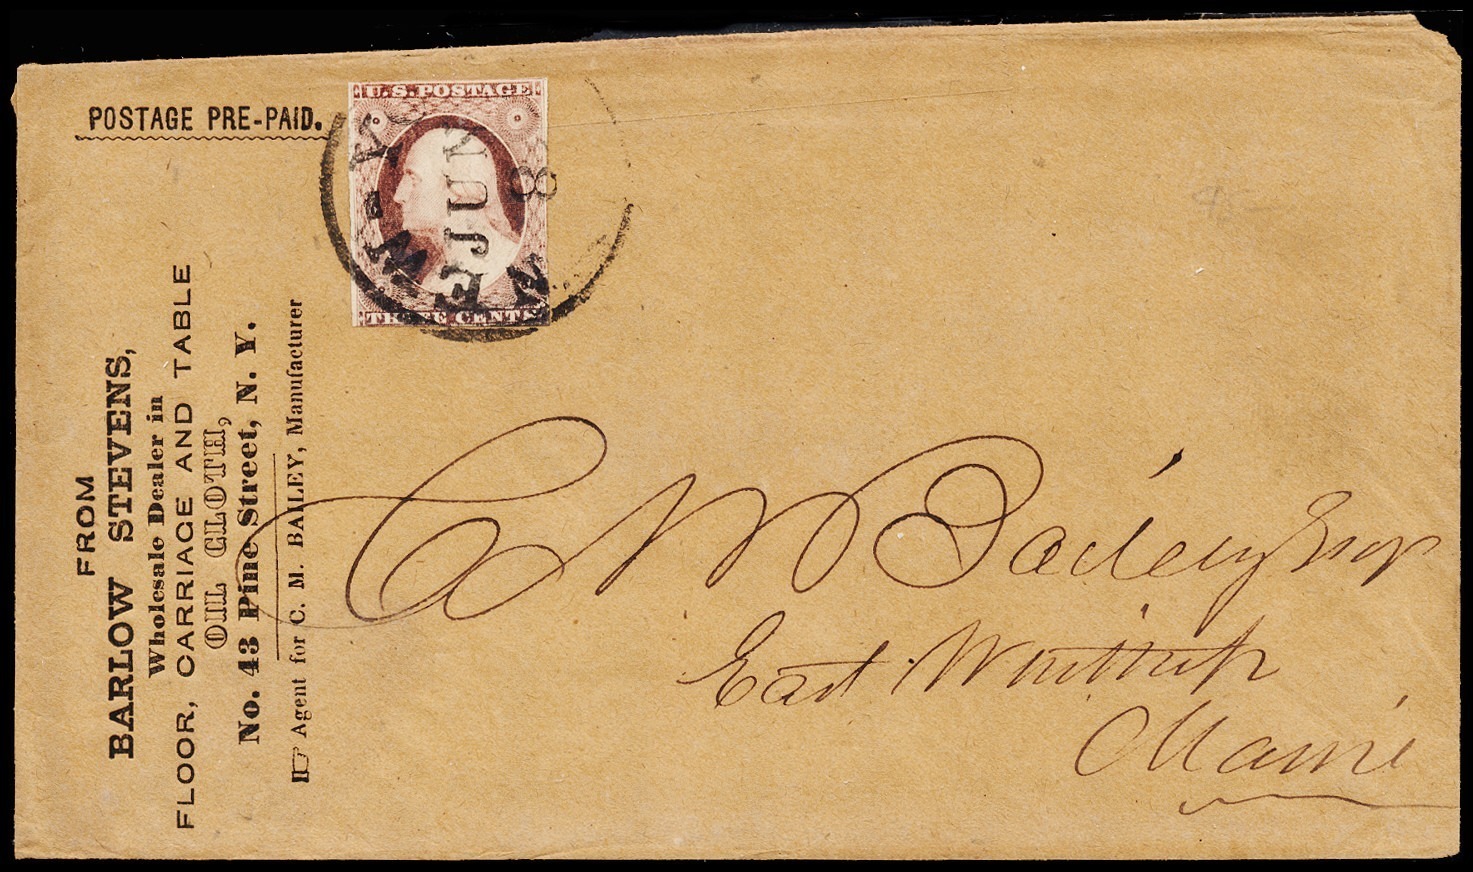 POSTAGE PRE-PAID.
U.S. POSTAGE
THREE CENTS
NEW-YO
JUN
8
FROM
BARLOW STEVENS,
Wholesale Dealer in
FLOOR, CARRIAGE AND TABLE
OIL CLOTH,
No. 43 Pine Street, N. Y.
☞ Agent for C. M. BAILEY, Manufacturer
C M Bailey Esqr
East Winthrop
Maine